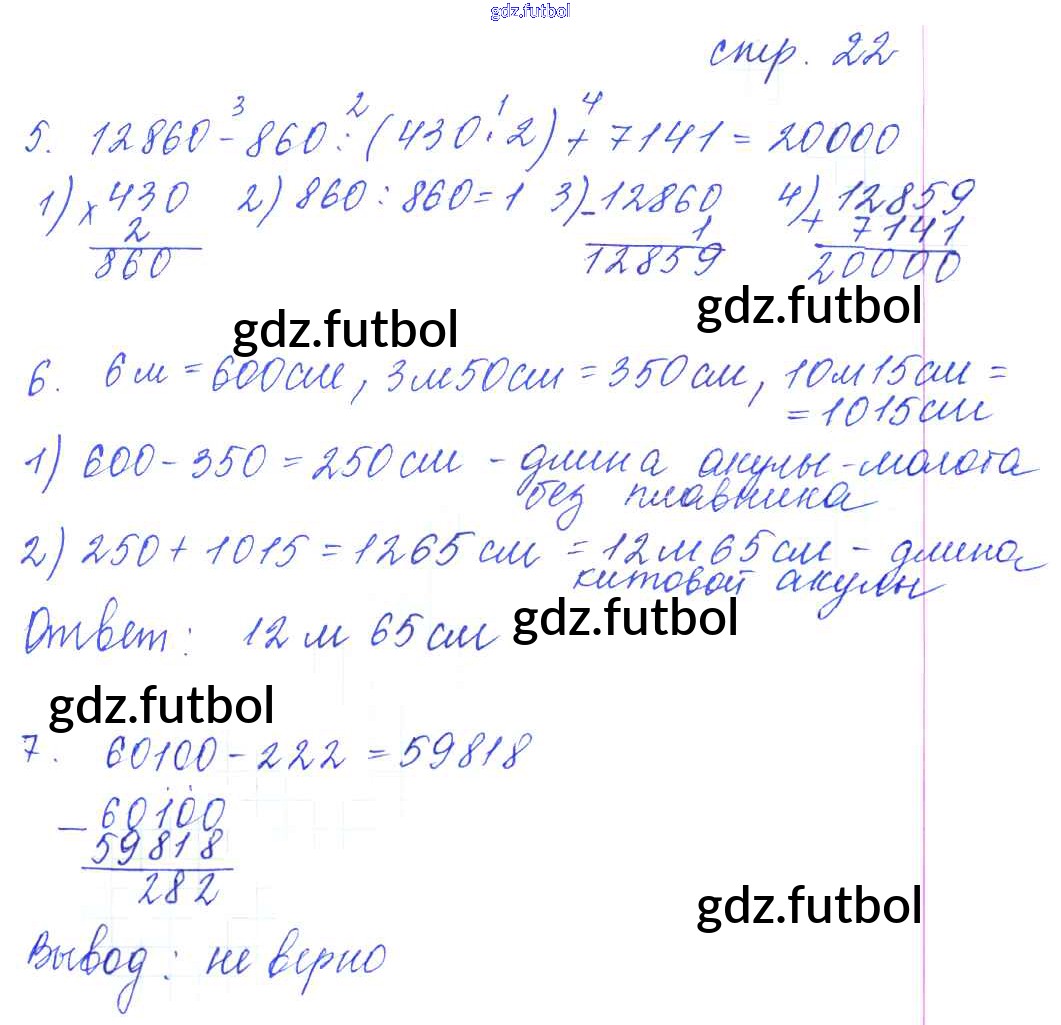 gdz.futbol
стр. 22
3 2 1 4
5. 12860 - 860 : (430 · 2) + 7141 = 20000
1) × 430 2) 860 : 860 = 1 3) - 12860 4) + 12859
2 1 7141
860 12859 20000
gdz.futbol gdz.futbol
6. 6 м = 600 см, 3 м 50 см = 350 см, 10 м 15 см =
= 1015 см
1) 600 - 350 = 250 см - длина акулы-молота
без плавника
2) 250 + 1015 = 1265 см = 12 м 65 см - длина
китовой акулы
Ответ: 12 м 65 см
gdz.futbol
gdz.futbol
7. 60100 - 222 = 59818
- 60100
59818
282
gdz.futbol
Вывод: не верно